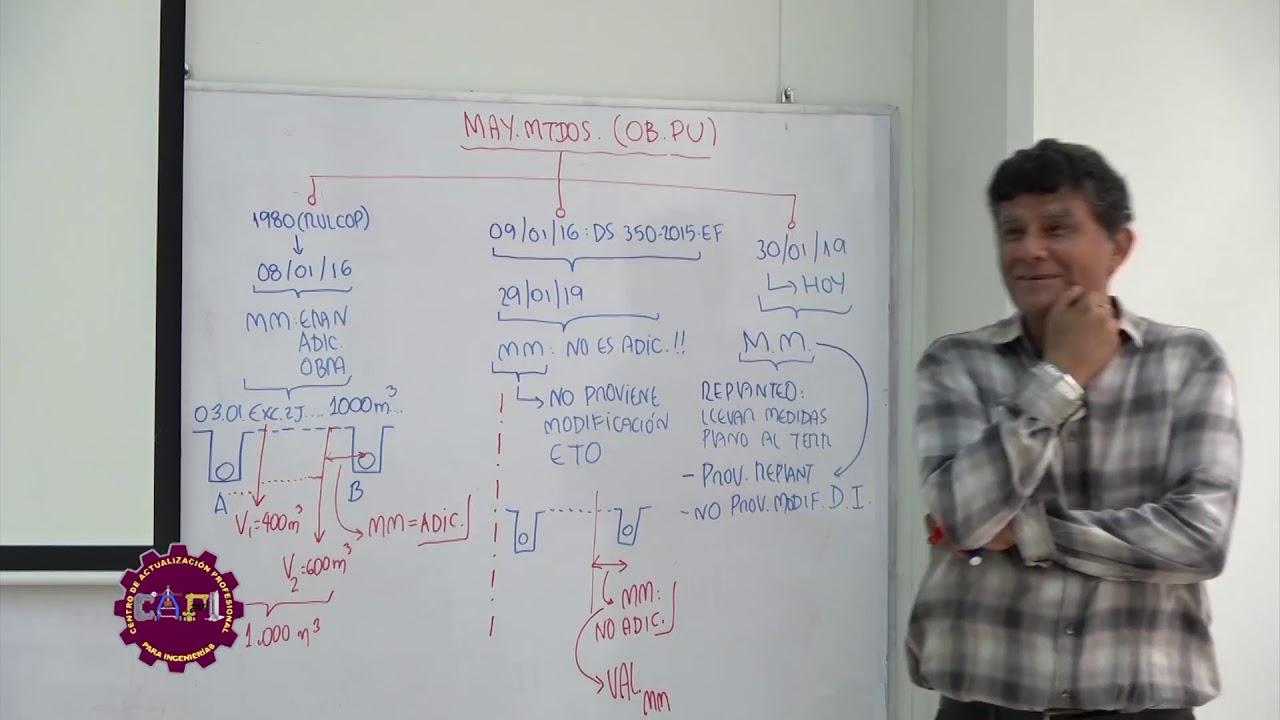 MAY. MTDOS. (OB. PU)
1980 (RULCOP)
08/01/16
MM: ERAN
ADIC.
OBRA
03.01 EXC. ZJ.... 1000 m³...
A
B
V₁ = 400 m³
V₂ = 600 m³
1.000 m³
MM = ADIC.
09/01/16: DS 350-2015-EF
29/01/19
MM: NO ES ADIC.!!
NO PROVIENE
MODIFICACIÓN
ETO
MM:
NO ADIC.
VAL. MM
30/01/19
HOY
M.M.
REPLANTEO:
LLEVAR MEDIDAS
PLANO AL TERR
- PROV. REPLANT
- NO PROV. MODIF. D.I.
CENTRO DE ACTUALIZACIÓN PROFESIONAL
CAPI
PARA INGENIERÍAS